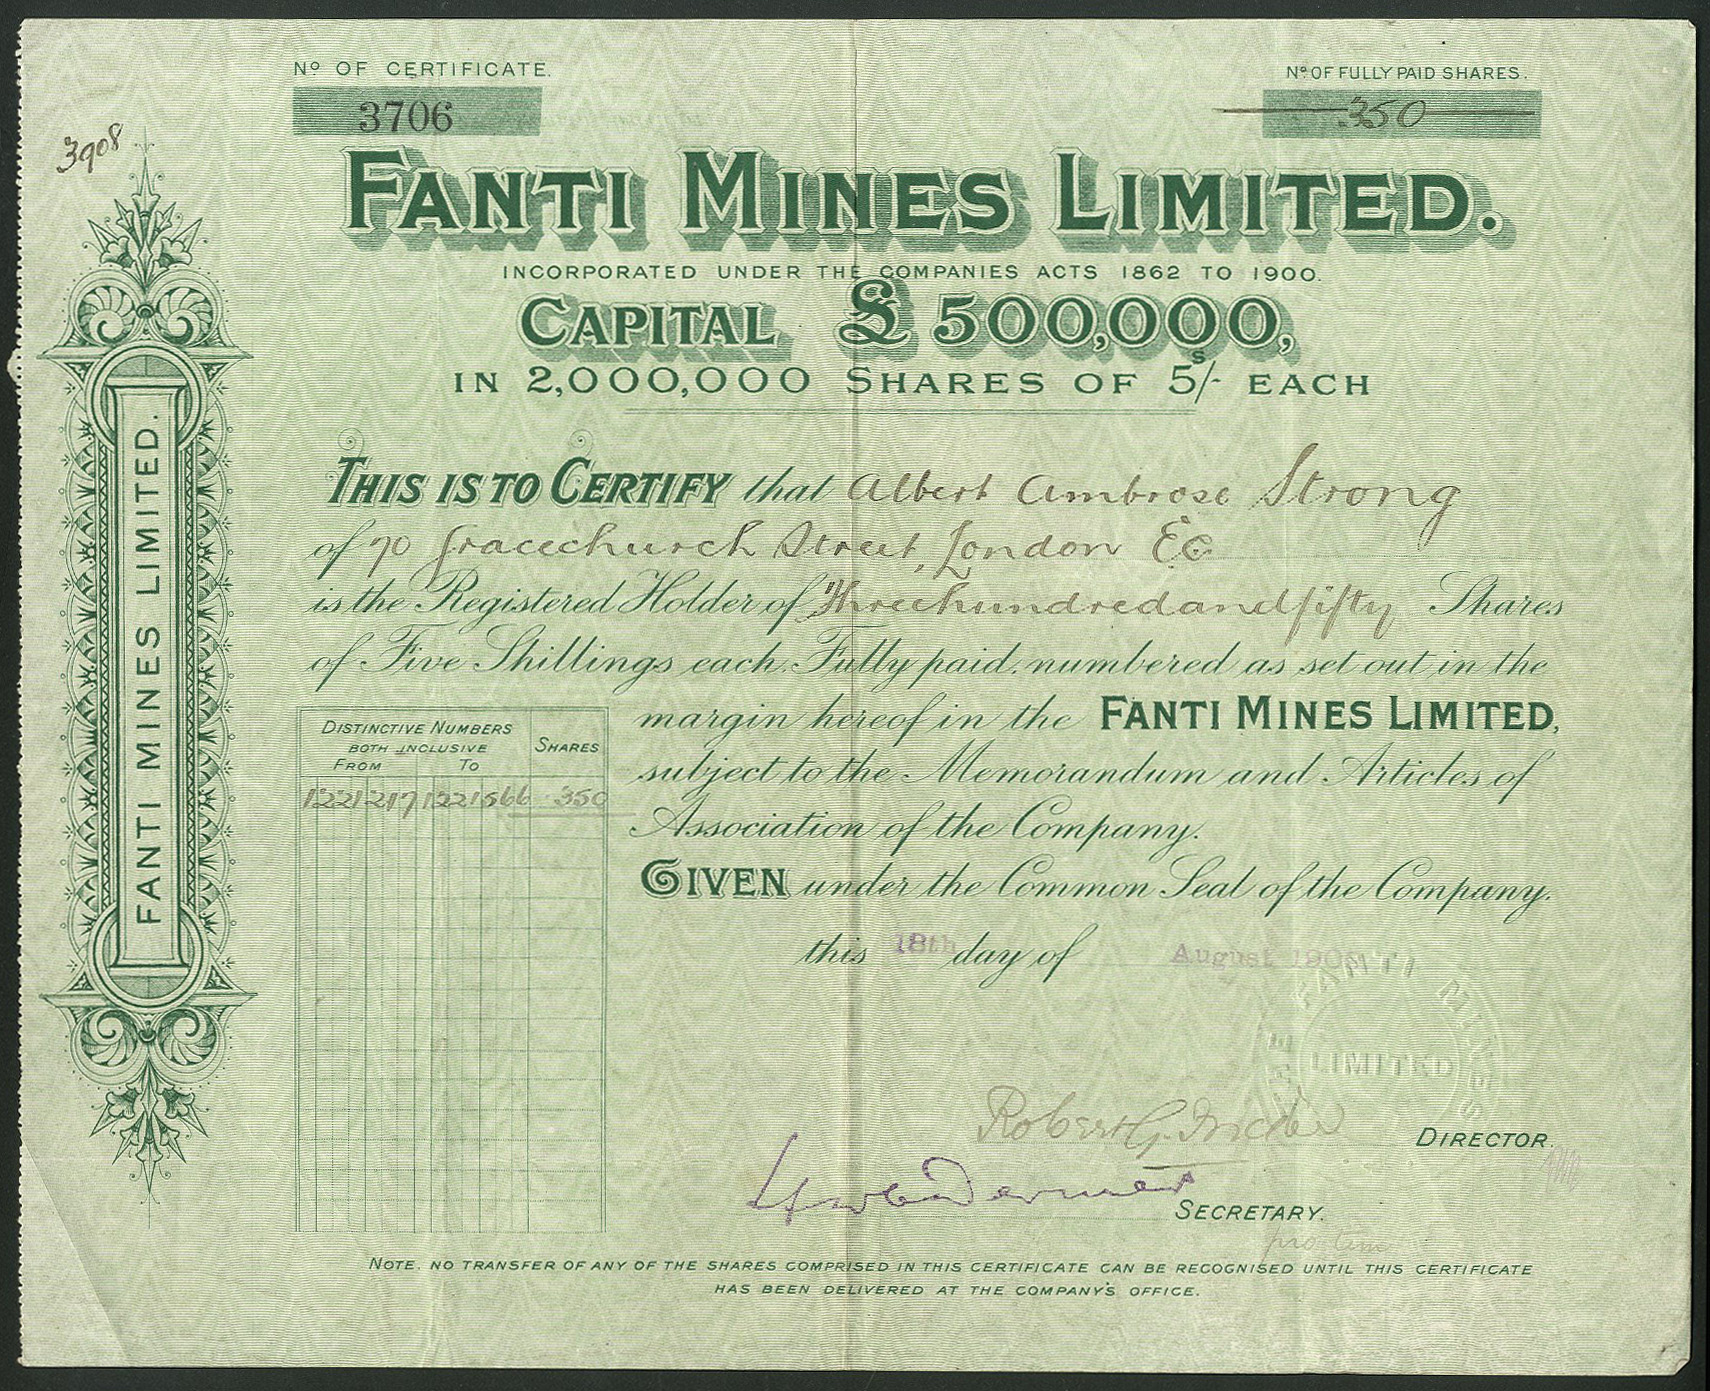 Nº OF CERTIFICATE.
3706
Nº OF FULLY PAID SHARES.
350
3908
FANTI MINES LIMITED.
INCORPORATED UNDER THE COMPANIES ACTS 1862 TO 1900.
CAPITAL £500,000,
IN 2,000,000 SHARES OF 5s/- EACH
FANTI MINES LIMITED.
THIS IS TO CERTIFY that Albert Ambrose Strong
of 70 Gracechurch Street, London EC
is the Registered Holder of Threehundredandfifty Shares
of Five Shillings each Fully paid, numbered as set out in the
margin hereof in the FANTI MINES LIMITED,
subject to the Memorandum and Articles of
Association of the Company.
DISTINCTIVE NUMBERS
BOTH INCLUSIVE
FROM TO
SHARES
1221217 1221566 350
GIVEN under the Common Seal of the Company.
this 18th day of August
FANTI MINES
LIMITED
Robert G.
DIRECTOR.
SECRETARY.
pro tem
NOTE. NO TRANSFER OF ANY OF THE SHARES COMPRISED IN THIS CERTIFICATE CAN BE RECOGNISED UNTIL THIS CERTIFICATE
HAS BEEN DELIVERED AT THE COMPANY'S OFFICE.